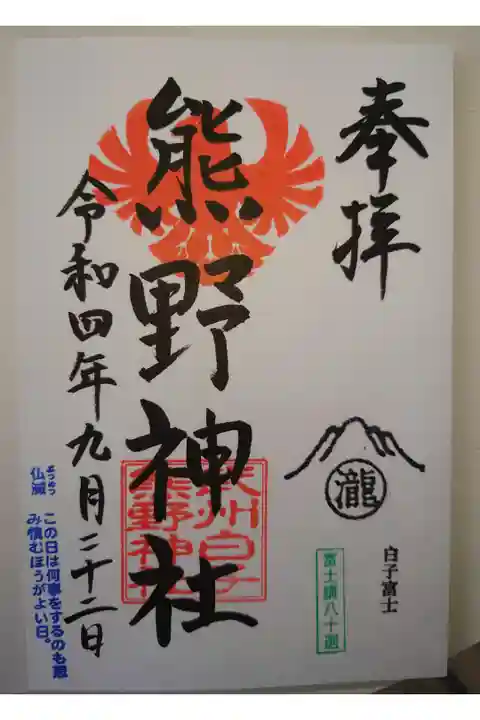 奉拝
瀧
白子富士
熊野神社
武州白子
熊野神社
令和四年九月二十二日
ぶつめつ
仏滅 この日は何事をするのも忌
み慎むほうがよい日。